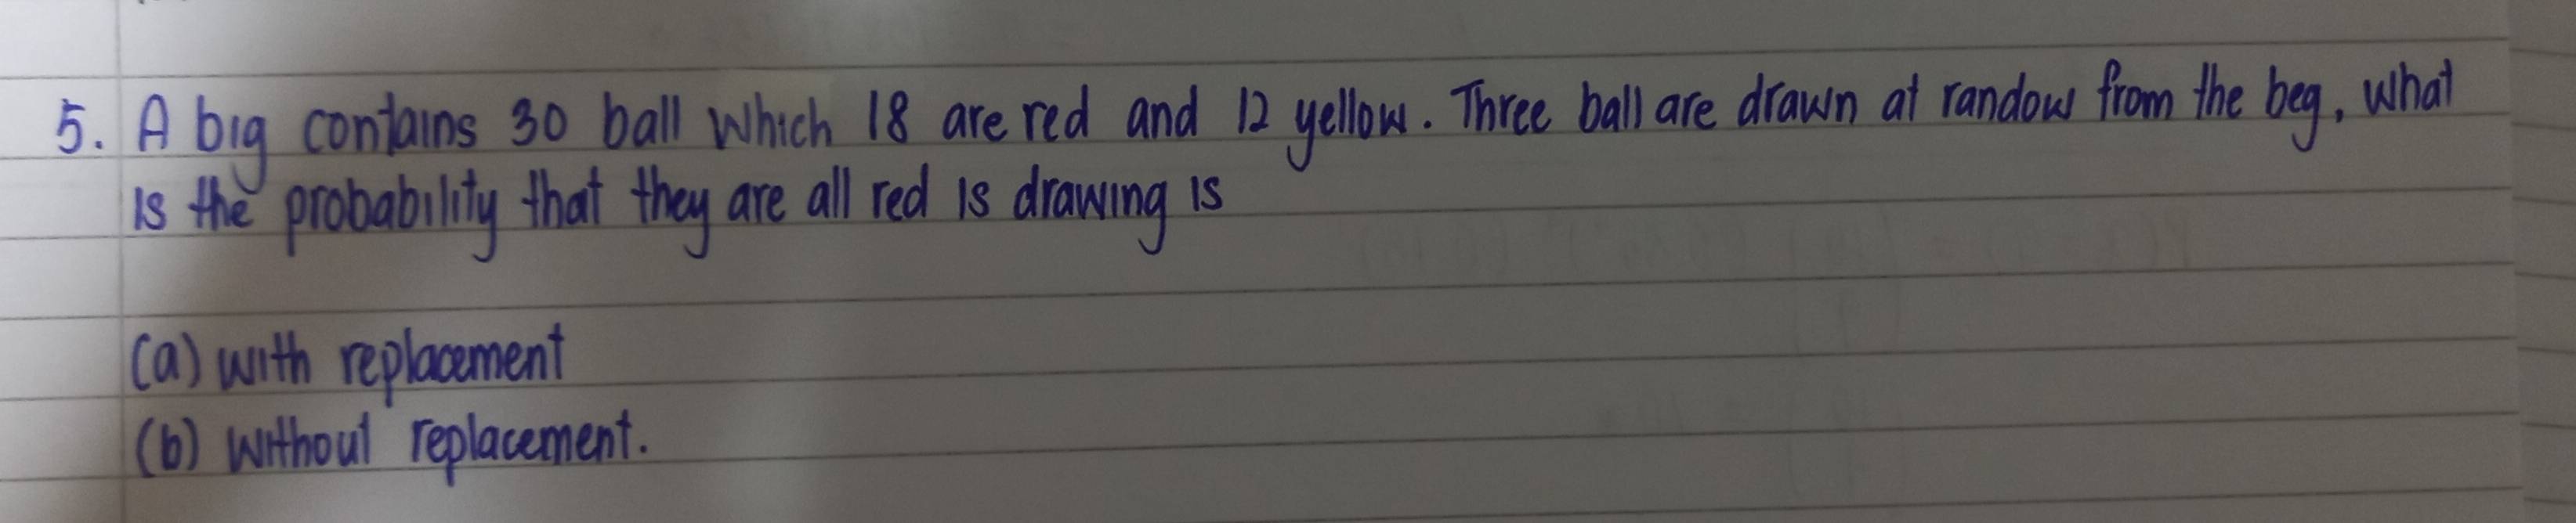 5. A big contains 30 ball which 18 are red and 12 yellow. Three ball are drawn at randow from the beg, what
is the probability that they are all red is drawing is
(a) with replacement
(b) without replacement.